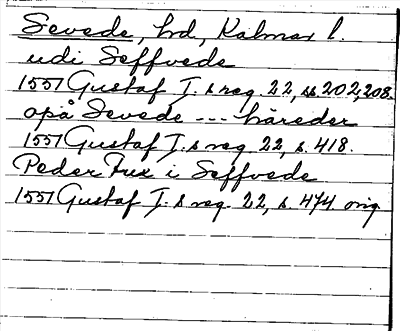 Sevede, hd, Kalmar l.
udi Seffvede
1557 Gustaf I.s reg. 22, ss 202, 208.
opå Sevede --- häreder
1557 Gustaf I.s reg. 22, s. 418.
Peder Fux i Seffvede
1557 Gustaf I.s reg. 22, s. 474 orig